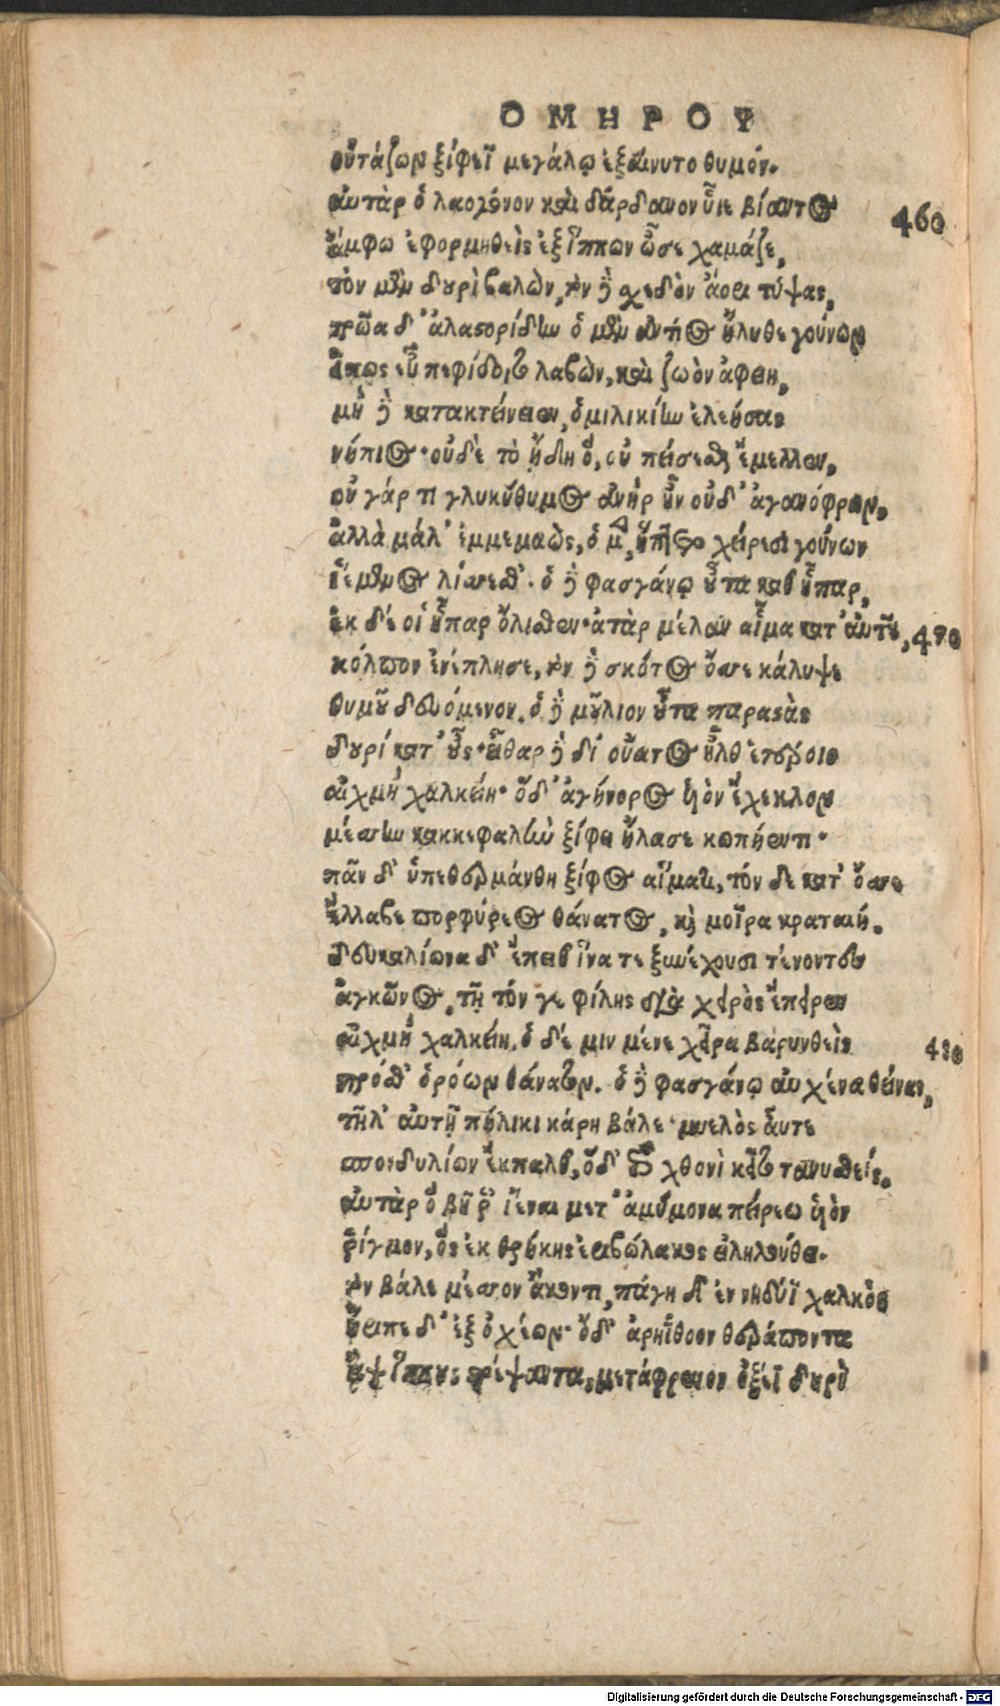 ΟΜΗΡΟΥ
οὐτάζων ξίφεϊ μεγάλῳ ἐξαίνυτο θυμόν.
αὐτὰρ ὁ λαογόνον καὶ δάρδανον ὗιε βίαντος 460
ἄμφω ἐφορμηθεὶς ἐξ ἵππων ὦσε χαμάζε,
τὸν μὲν δουρὶ βαλὼν, τὸν δὲ σχεδὸν ἄορι τύψας,
τρῶα δ' ἀλαστορίδην ὁ μὲν ἀντίος ἤλυθε γούνων
εἴπως εὗ πεφίδοιτο λαβὼν, καὶ ζωὸν ἀφείη,
μὴ δὲ κατακτείνειεν, ὁμιλικίην ἐλεήσας
νήπιος. οὐδὲ τὸ ἤδη ὅ, οὐ πείσεσθαι ἔμελλεν,
οὐ γάρ τι γλυκύθυμος ἀνὴρ ἦν οὐδ' ἀγανόφρων,
ἀλλὰ μάλ' ἐμμεμαὼς, ὁ μὲν ἥπτετο χείρεσι γούνων
ἱέμενος λίσσεσθ'. ὁ δὲ φασγάνῳ οὖτα καθ' ἧπαρ,
ἐκ δέ οἱ ἧπαρ ὄλισθεν. ἀτὰρ μέλαν αἷμα κατ' αὐτοῦ, 470
κόλπον ἐνέπλησε, τὸν δὲ σκότος ὄσσε κάλυψε
θυμοῦ δευόμενον. ὁ δὲ μούλιον οὖτα παραστὰς
δουρὶ κατ' οὖς. εἶθαρ δὲ δι' οὔατος ἦλθ' ἑτέροιο
αἰχμὴ χαλκείη. ὅδ' ἀγήνορος ὑιὸν ἔχεκλον
μέσσην κακκεφαλὴν ξίφει ἤλασε κωπήεντι.
πᾶν δ' ὑπεθερμάνθη ξίφος αἵματι, τόν δε κατ' ὄσσε
ἔλλαβε πορφύρεος θάνατος, καὶ μοῖρα κραταιή.
δευκαλίωνα δ' ἔπειθ' ἵνα τε ξυνέχουσι τένοντες
ἀγκῶνος, τῇ τόν γε φίλης διὰ χειρὸς ἔπειρεν
αἰχμὴ χαλκείη. ὁ δέ μιν μένε χεῖρα βαρυνθεὶς 480
πρόσθ' ὁρόων θάνατον. ὁ δὲ φασγάνῳ αὐχένα θείνας,
τῆλ' αὐτῇ πήληκι κάρη βάλε. μυελὸς αὖτε
σπονδυλίων ἔκπαλθ', ὅδ' ἐπὶ χθονὶ κεῖτο τανυσθείς.
αὐτὰρ ὁ βῆ ῥ' ἰέναι μετ' ἀμύμονα πείρεω ὑιὸν
ῥίγμον, ὃς ἐκ θρῄκης ἐριβώλακος εἰληλούθει.
τὸν βάλε μέσσον ἄκοντι, πάγη δ' ἐν νηδύϊ χαλκὸς
ἤριπε δ' ἐξ ὀχέων. ὅδ' ἀρηΐθοον θεράποντα
ἂψ ἵππους στρέψαντα, μετάφρενον ὀξέϊ δουρὶ
Digitalisierung gefördert durch die Deutsche Forschungsgemeinschaft - DFG